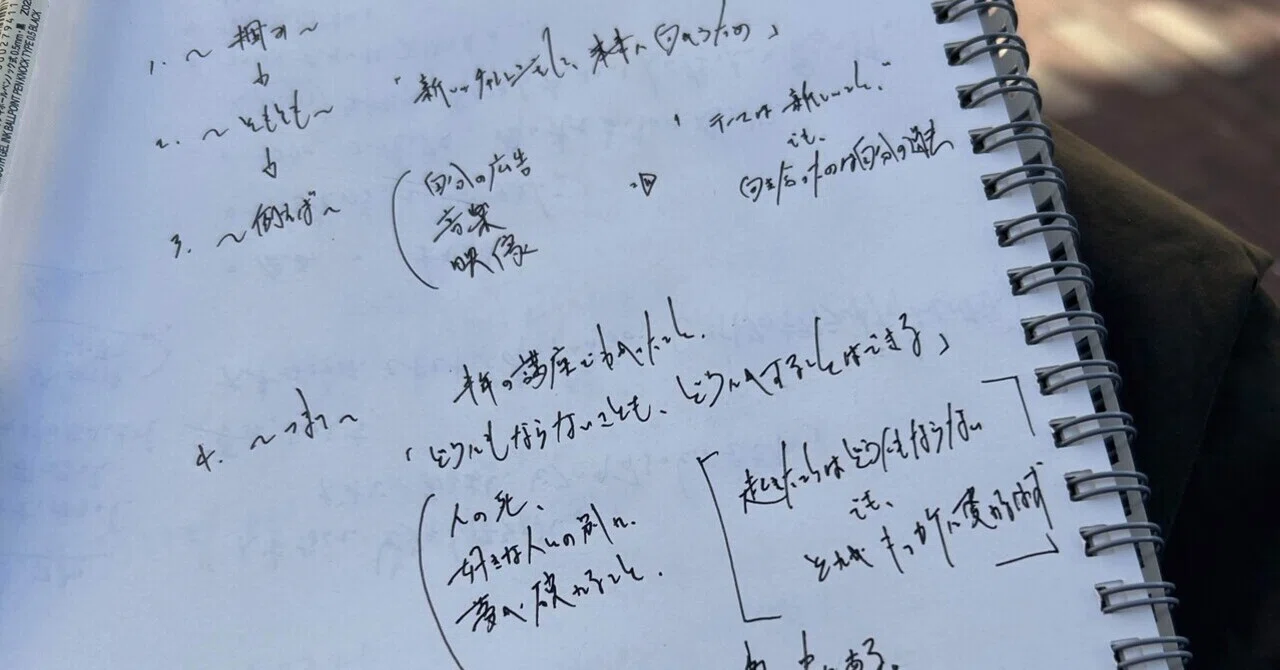 1. 〜掴み〜
↓
「新しいチャレンジをして、未来に向かうための」
2. 〜そもそも〜
↓
テーマは新しいこと。
でも、
向き合ったのは自分の過去
3. 〜例えば〜
自分の広告
音楽
映像
4. 〜つまり〜
本年の講座でわかったこと。
「どうにもならないことも、どうにかすることはできる」
人の死、
好きな人との別れ、
夢が破れること。
起きたことはどうにもならない
でも、
それがきっかけに変わるはず
ある。
GEL INK BALLPOINT PEN KNOCK TYPE 0.5 BLACK